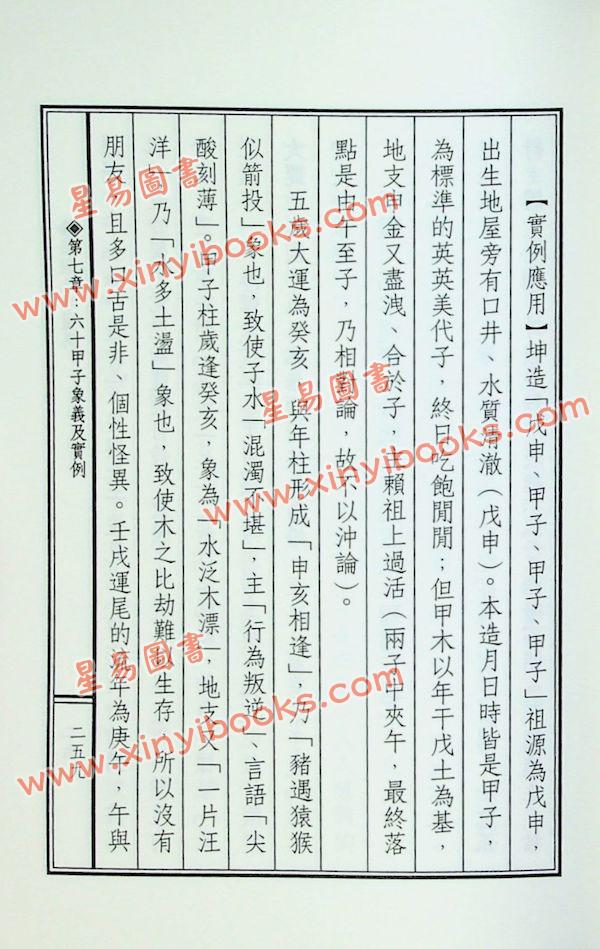 【實例應用】坤造「戊申、甲子、甲子、甲子」祖源為戊申，
出生地屋旁有口井、水質清澈（戊申）。本造月日時皆是甲子，
為標準的英英美代子，終日吃飽閒閒；但甲木以年干戊土為基，
地支申金又盡洩、合於子，主賴祖上過活（兩子中夾午，最終落
點是由午至子，乃相對論，故不以沖論）。
五歲大運為癸亥，與年柱形成「申亥相逢」，乃「豬遇猿猴
似箭投」象也，致使子水「混濁不堪」，主「行為叛逆」、言語「尖
酸刻薄」。甲子柱歲逢癸亥，象為「水泛木漂」，地支又「一片汪
洋」，乃「水多土盪」象也，致使木之比劫難以生存，所以沒有
朋友，且多口舌是非、個性怪異。壬戌運尾的流年為庚午，午與
◈第七章：六十甲子象義及實例
二五九
星易圖書
www.xinyibooks.com
星易圖書
www.xinyibooks.com
星易圖書
www.xinyibooks.com